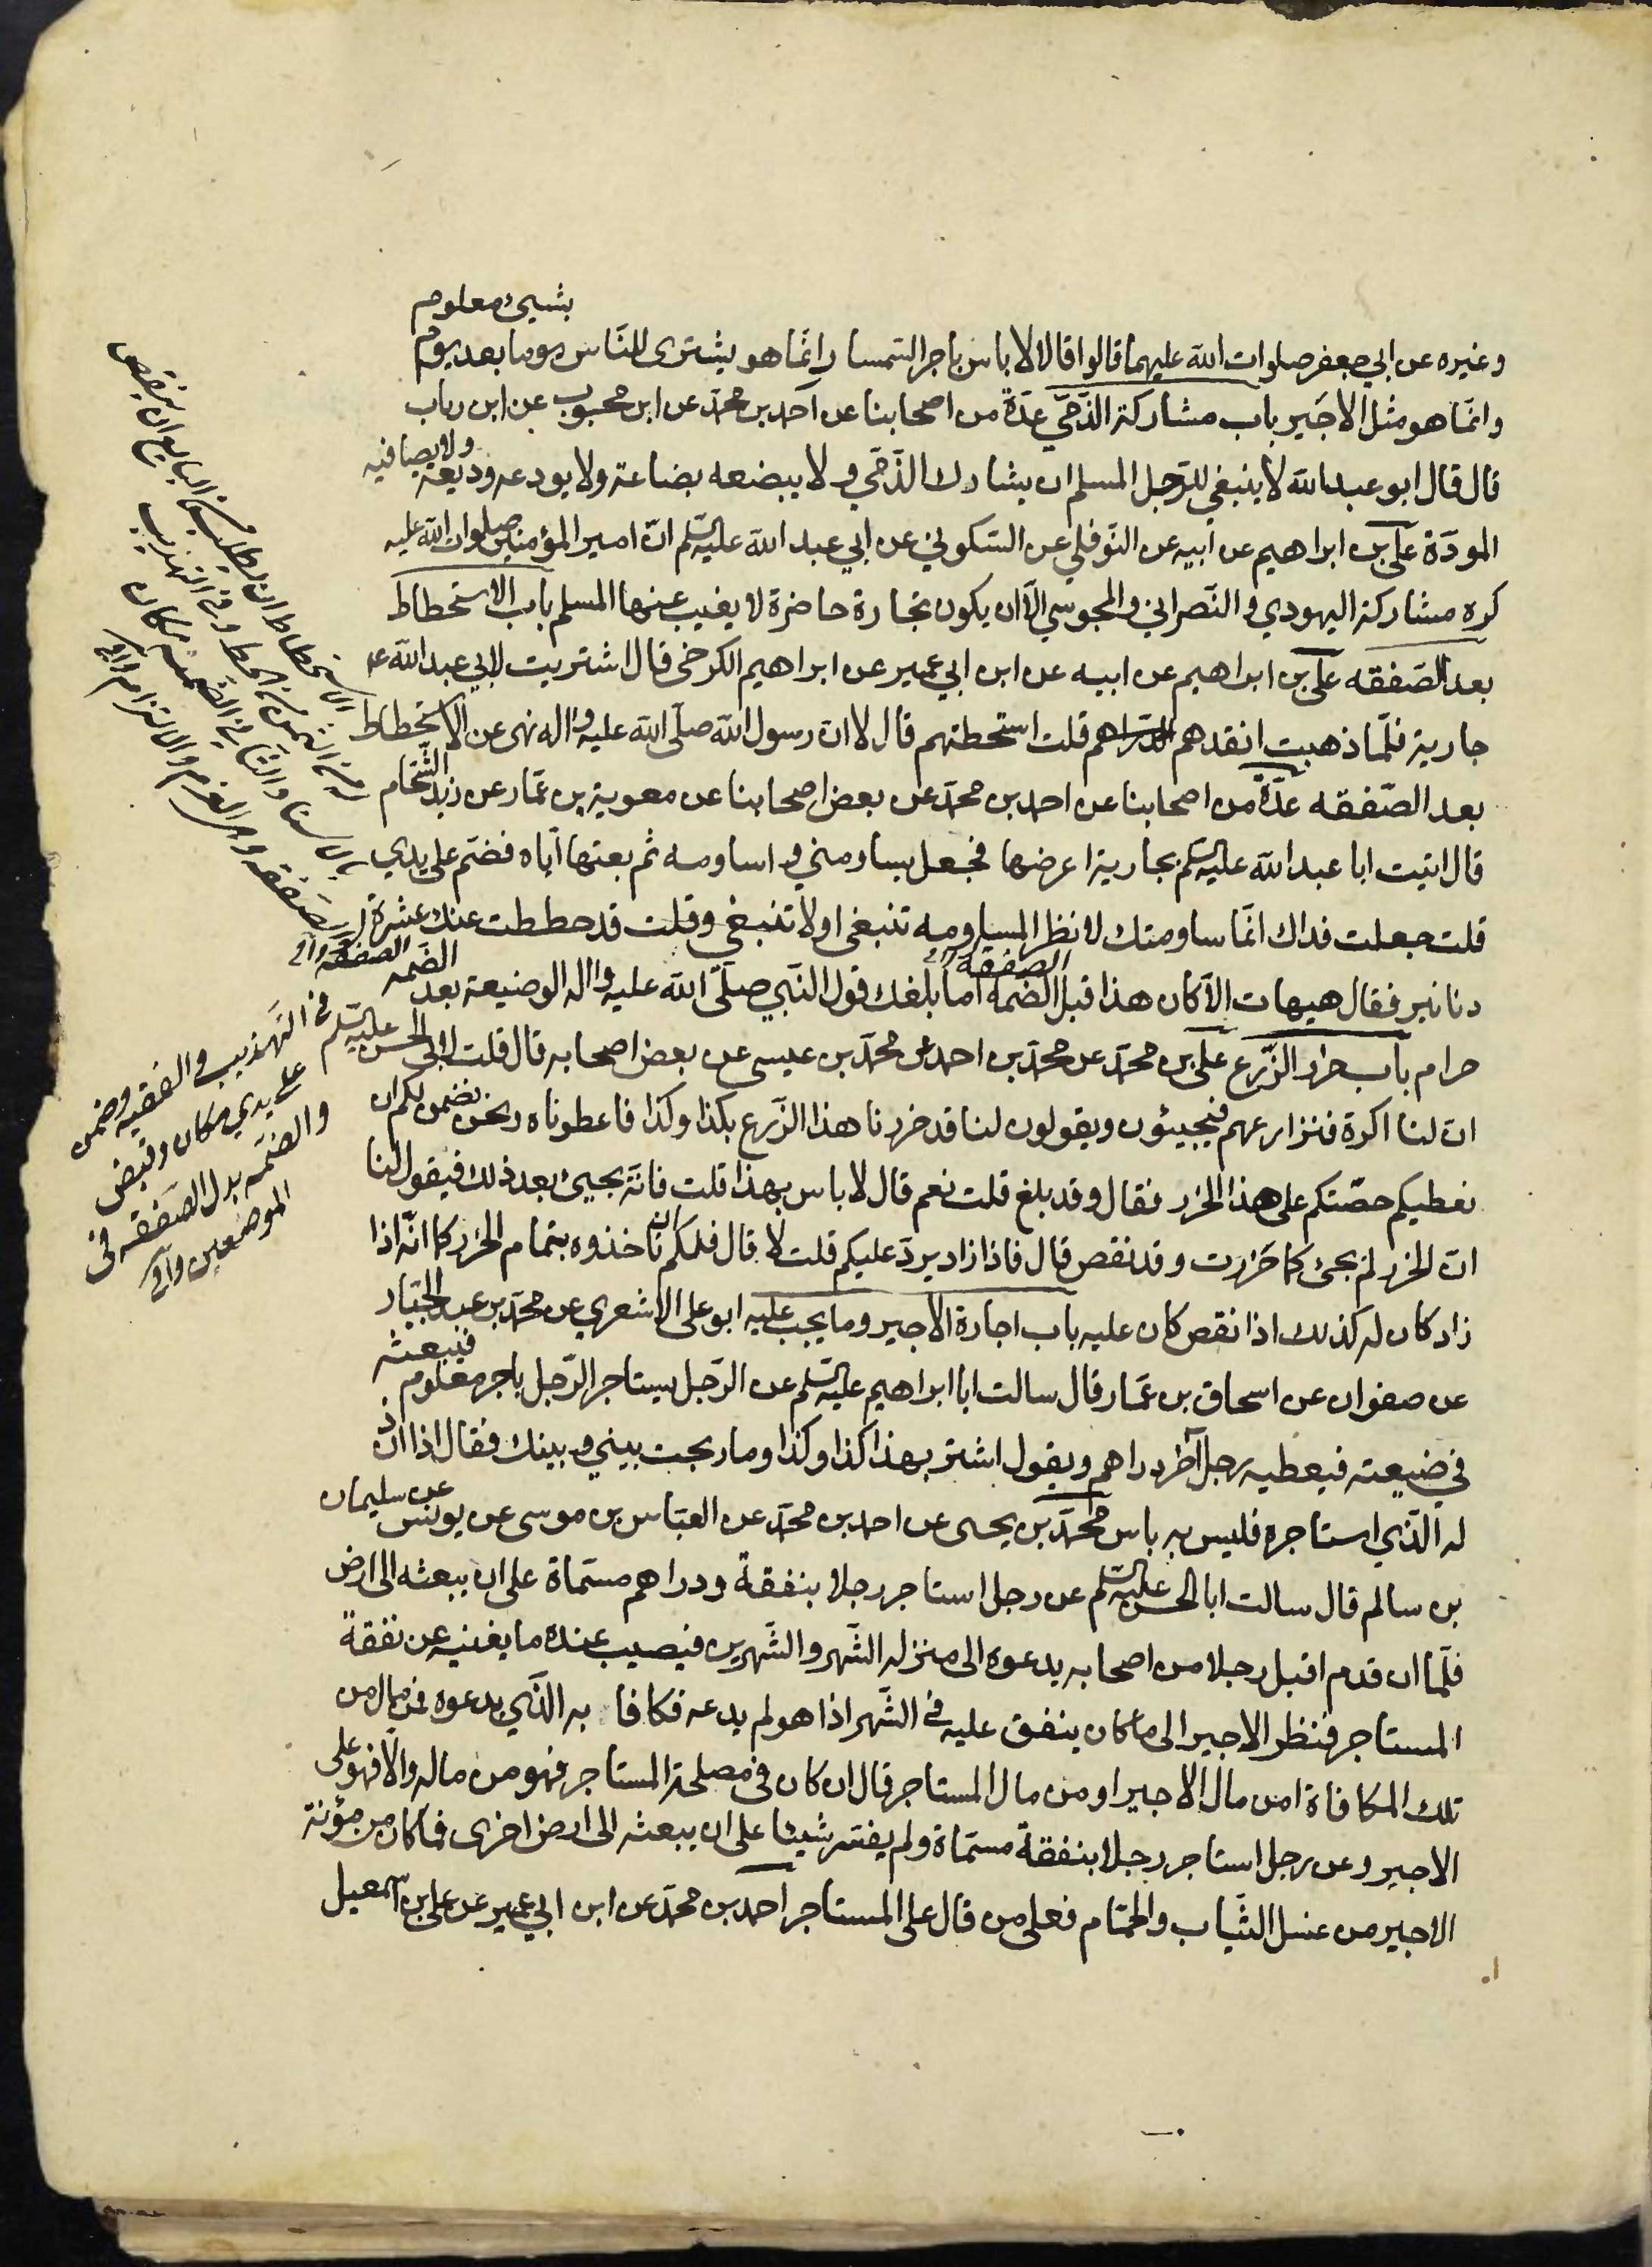 وغيره عن ابي جعفر صلوات الله عليهما قالوا قالا لا باس باجر السمسار انما هو يشترى للناس يوما بعد يوم بشيئ معلوم
وانما هو مثل الاجير باب مشاركة الذمي عدة من اصحابنا عن احمد بن محمد عن ابن محبوب عن ابن رباب
قال قال ابو عبد الله لا ينبغي للرجل المسلم ان يشارك الذمي ولا يبضعه بضاعة ولا يودعه وديعة ولا يصافيه
المودة علي بن ابراهيم عن ابيه عن النوفلي عن السكوني عن ابي عبد الله عليه السلم ان امير المؤمنين صلوات الله عليه
كره مشاركة اليهودي والنصراني والمجوسي الا ان يكون تجارة حاضرة لا يغيب عنها المسلم باب الاستحطاط
بعد الصفقه علي بن ابراهيم عن ابيه عن ابن ابي عمير عن ابراهيم الكرخي قال اشتريت لابي عبد الله ع
جارية فلما ذهبت انقدهم الدراهم قلت استحطهم قال لا ان رسول الله صلى الله عليه واله نهى عن الاستحطاط
بعد الصفقه عدة من اصحابنا عن احمد بن محمد عن بعض اصحابنا عن معوية بن عمار عن زيد الشحام
قال اتيت ابا عبد الله عليه السلم بجارية اعرضها فجعل يساومني واساومه ثم بعتها اياه فضم على يدي
قلت جعلت فداك انما ساومتك لانظر المساومه تنبغي او لا تنبغي وقلت قد حططت عنك عشرة
دنانير فقال هيهات الا كان هذا قبل الضمه اما بلغك قول النبي صلى الله عليه واله الوضيعة بعد الضمه
الصفقة
الصفقة
حرام باب حزر الزرع علي بن محمد عن محمد بن احمد عن محمد بن عيسى عن بعض اصحابه قال قلت لابي الحسن عليه السلم
ان لنا اكرة فنزارعهم فيجيئون ويقولون لنا قد حزرنا هذا الزرع بكذا وكذا فاعطوناه ونحن نضمن لكم ان
نعطيكم حصتكم على هذا الحزر فقال وقد بلغ قلت نعم قال لا باس بهذا قلت فانه يجيئ بعد ذلك فيقول لنا
ان الحزر لم يجئ كما حزرت وقد نقص قال فاذا زاد يرد عليكم قلت لا قال فلكم ان تاخذوه بتمام الحزر كما انه اذا
زاد كان له كذلك اذا نقص كان عليه باب اجارة الاجير وما يجب عليه ابو علي الاشعري عن محمد بن عبد الجبار
عن صفوان عن اسحاق بن عمار قال سالت ابا ابراهيم عليه السلم عن الرجل يستاجر الرجل باجر معلوم فيبعثه
في ضيعته فيعطيه رجل آخر دراهم ويقول اشتر بهذا كذا وكذا وما ربحت بيني وبينك فقال اذا اذن
له الذي استاجره فليس به باس محمد بن يحيى عن احمد بن محمد عن العباس بن موسى عن يونس عن سليمان
بن سالم قال سالت ابا الحسن عليه السلم عن رجل استاجر رجلا بنفقة ودراهم مسماة على ان يبعثه الى ارض
فلما ان قدم اقبل رجلا من اصحابه يدعوه الى منزله الشهر والشهرين فيصيب عنده ما يغنيه عن نفقة
المستاجر فنظر الاجير الى ما كان ينفق عليه في الشهر اذا هو لم يدعه فكافا به الذي يدعوه فمن مال من
تلك المكافاة امن مال الاجير او من مال المستاجر قال ان كان في مصلحة المستاجر فهو من ماله والا فهو على
الاجير وعن رجل استاجر رجلا بنفقة مسماة ولم يفته شيئا على ان يبعثه الى ارض اخرى فما كان من مؤنة
الاجير من غسل الثياب والحمام فعلى من قال على المستاجر احمد بن محمد عن ابن ابي عمير عن علي بن اسمعيل
الاستحطاط ان يطلب من البايع ان ينقص
له من الثمن من الحط وفي التهذيب
في التهذيب والفقيه وضمن
على يدي مكان وقبض
والضمه بدل الصفقه في
الموضعين وافي